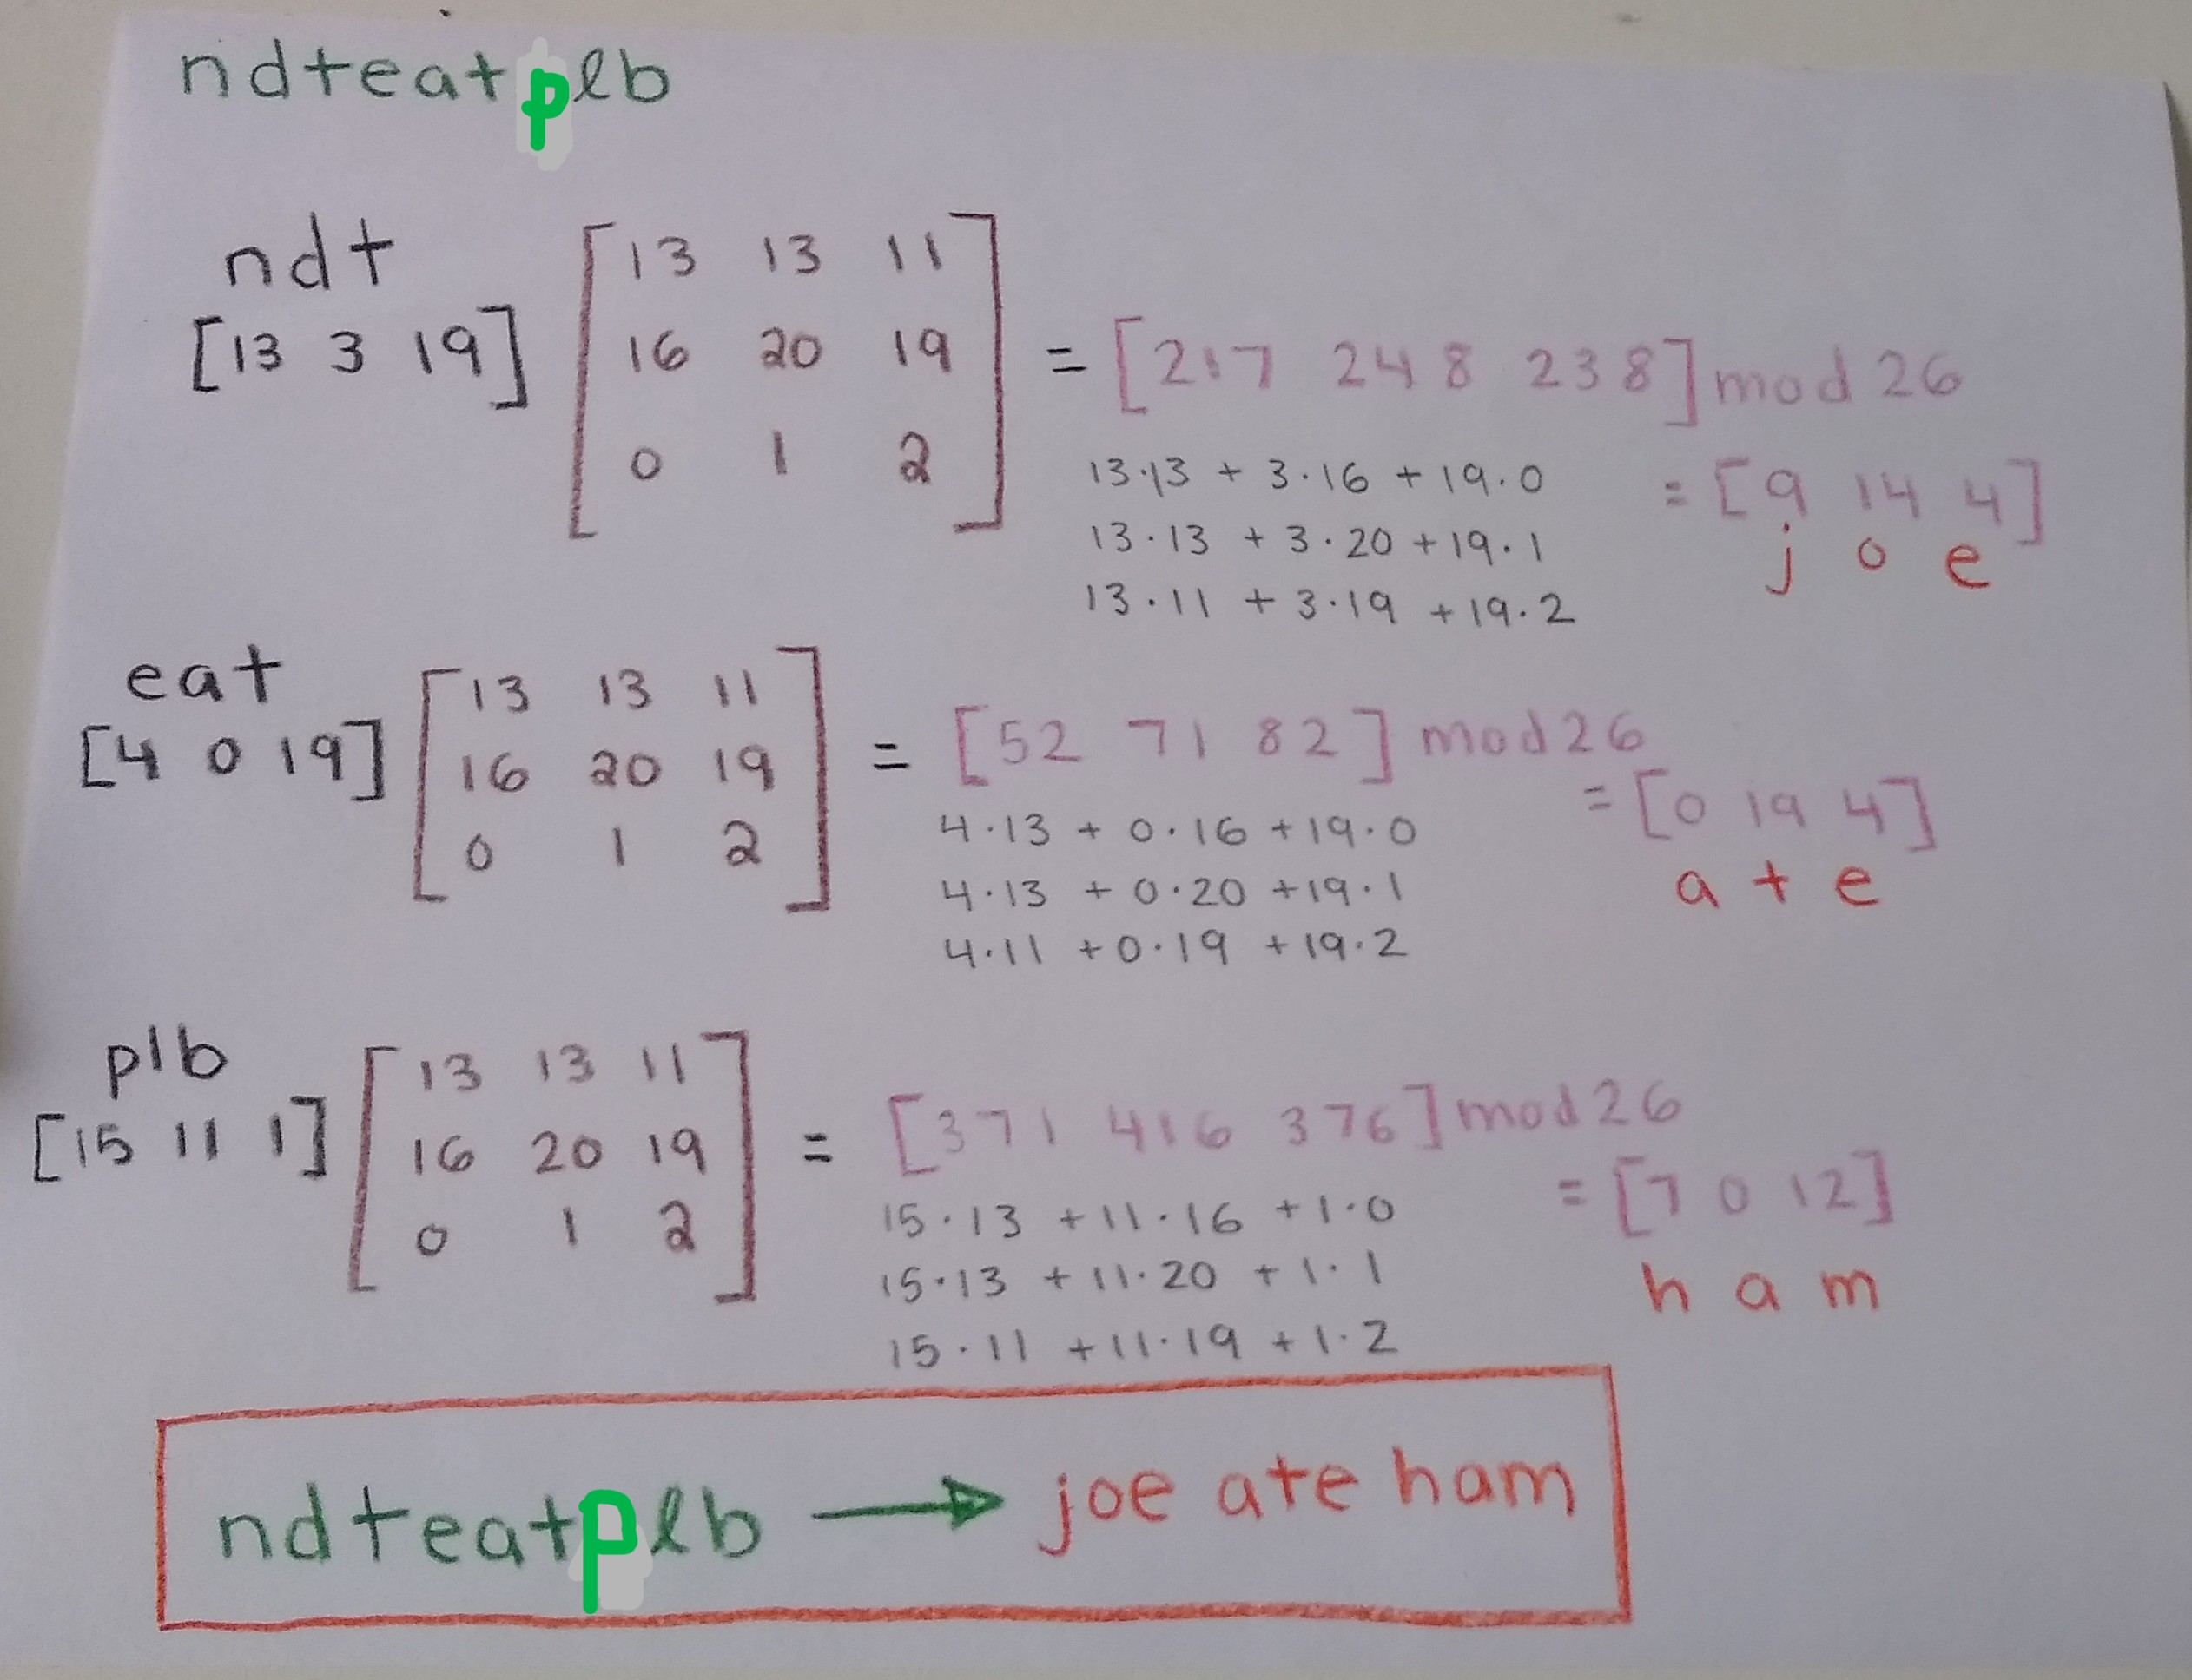 ndteatplb
ndt
[13 3 19] [13 13 11
16 20 19
0 1 2] = [217 248 238] mod 26
13·13 + 3·16 + 19·0
13·13 + 3·20 + 19·1
13·11 + 3·19 + 19·2
= [9 14 4]
j o e
eat
[4 0 19] [13 13 11
16 20 19
0 1 2] = [52 71 82] mod 26
4·13 + 0·16 + 19·0
4·13 + 0·20 + 19·1
4·11 + 0·19 + 19·2
= [0 19 4]
a t e
plb
[15 11 1] [13 13 11
16 20 19
0 1 2] = [371 416 376] mod 26
15·13 + 11·16 + 1·0
15·13 + 11·20 + 1·1
15·11 + 11·19 + 1·2
= [7 0 12]
h a m
ndteatplb → joe ate ham